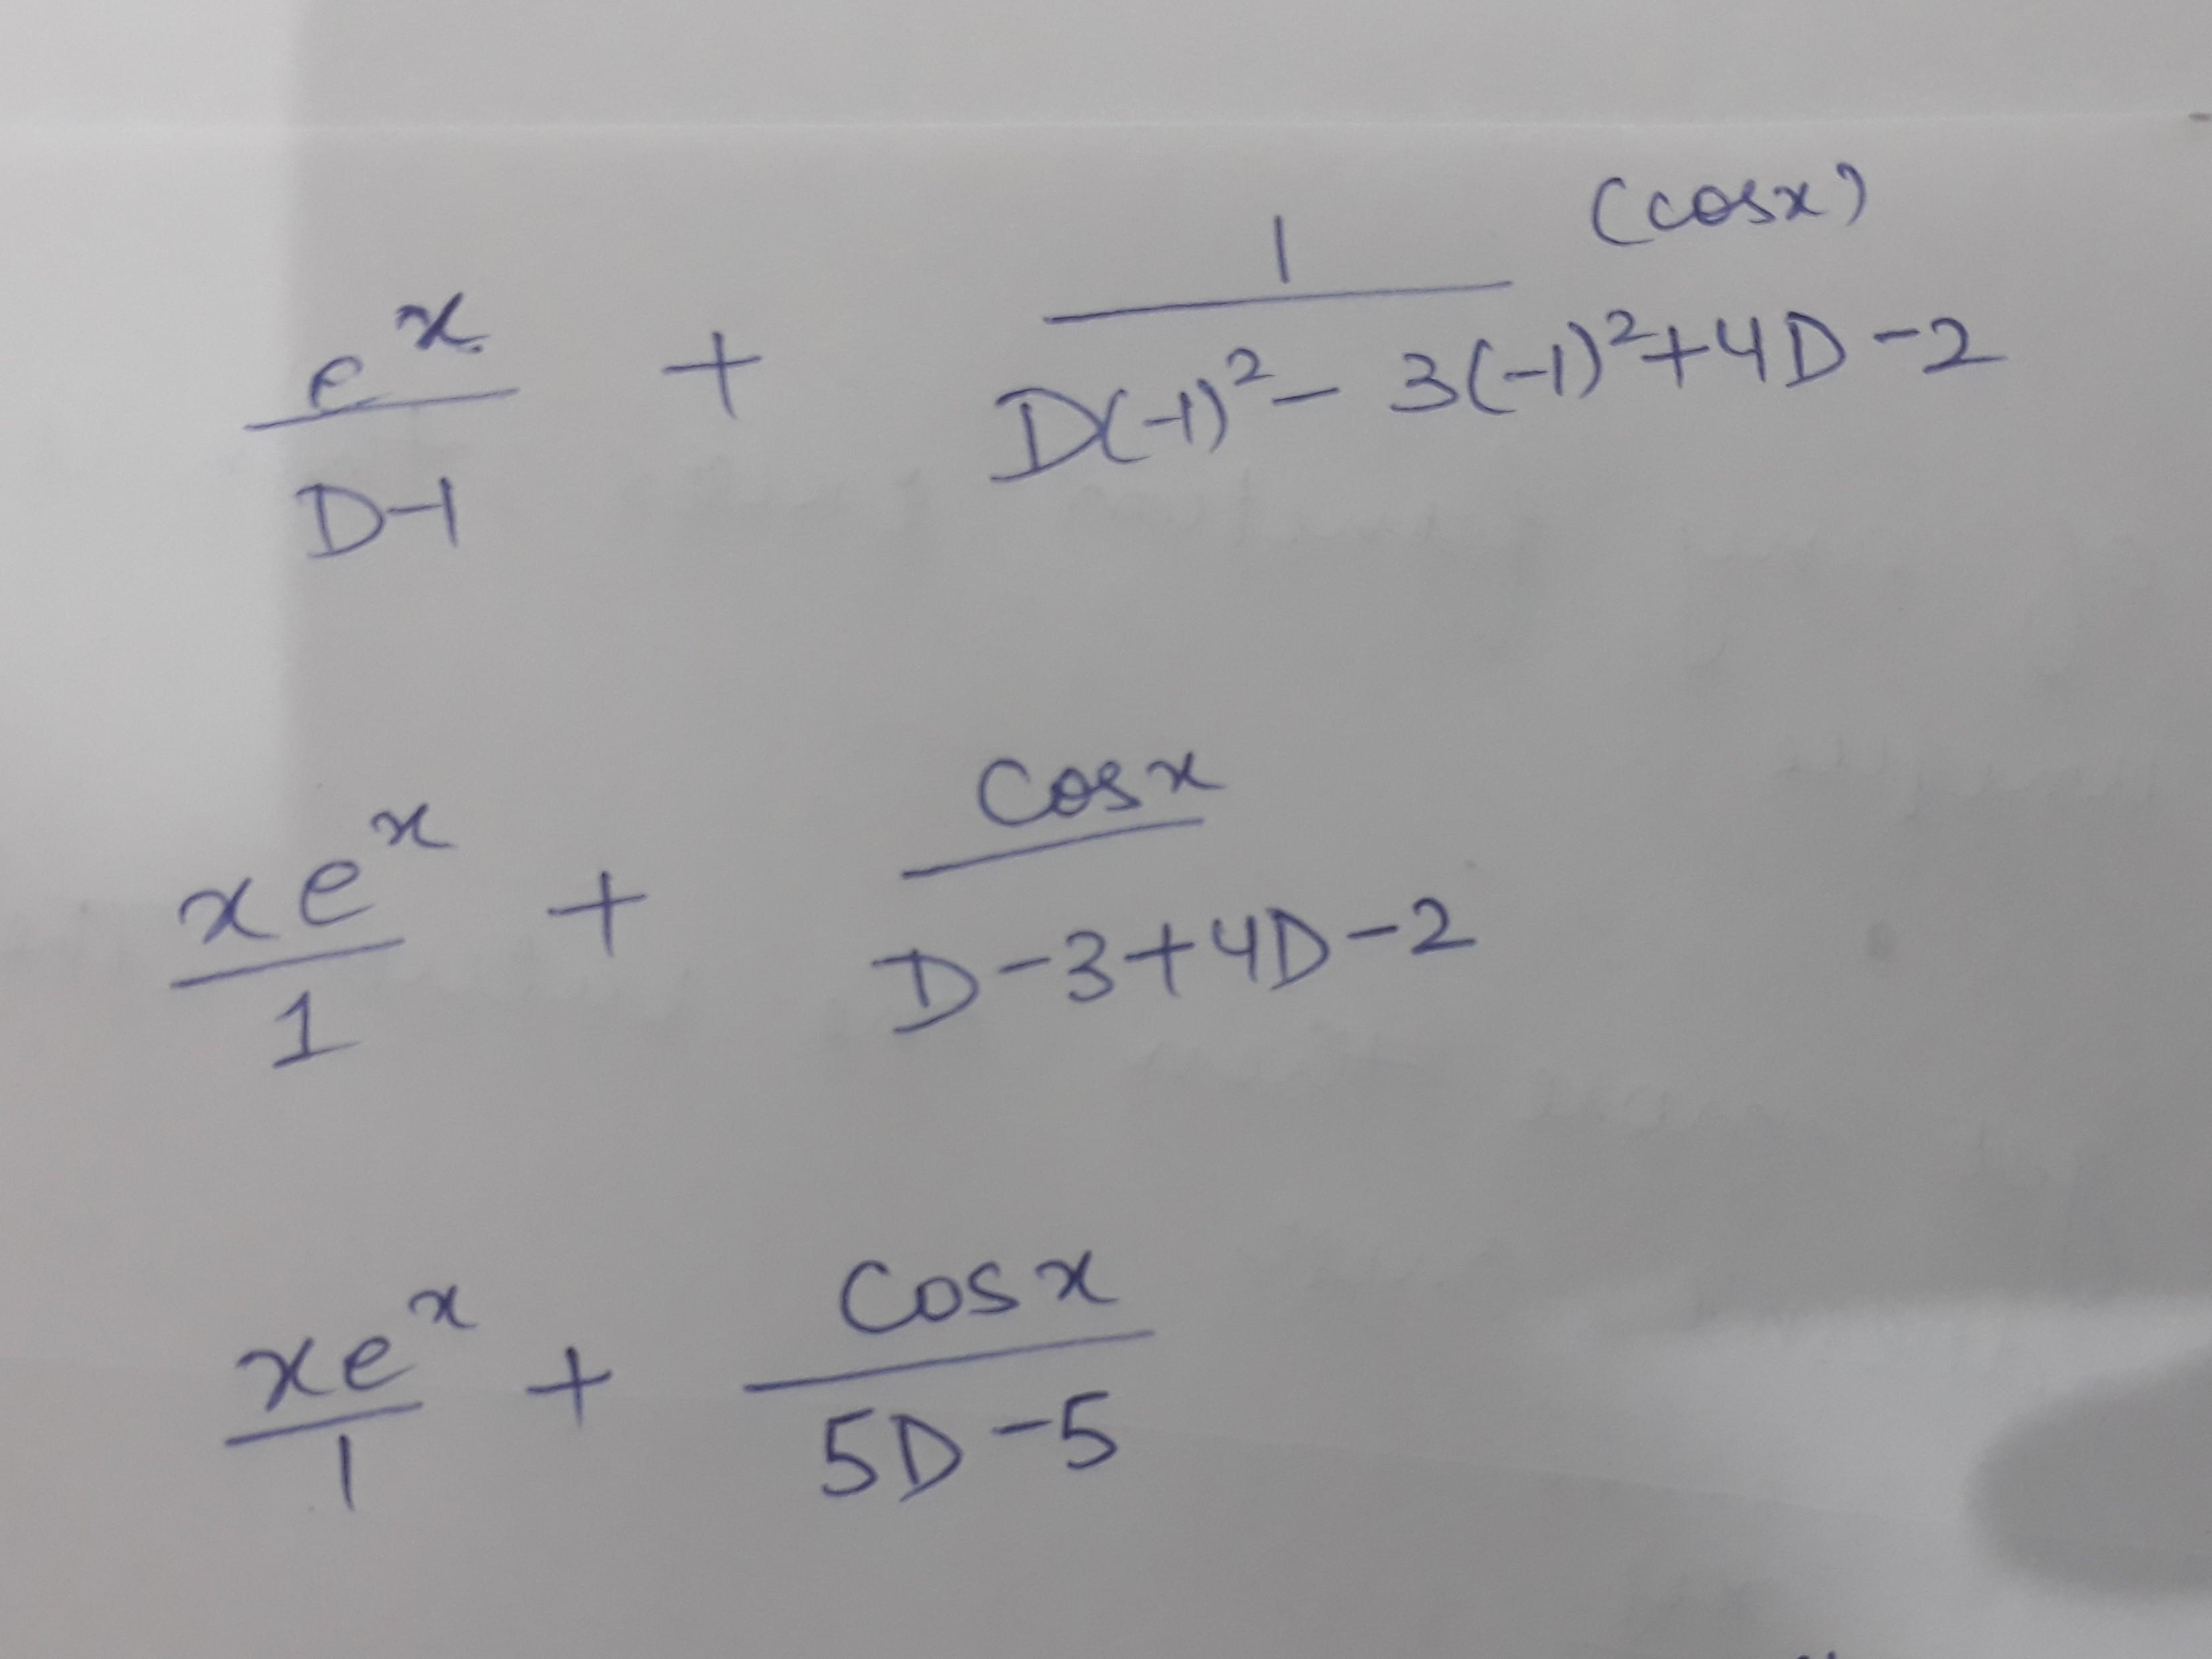 e^x / D-1 + 1 / D(-1)²- 3(-1)²+4D-2 (cosx)
xe^x / 1 + cosx / D-3+4D-2
xe^x / 1 + Cosx / 5D-5